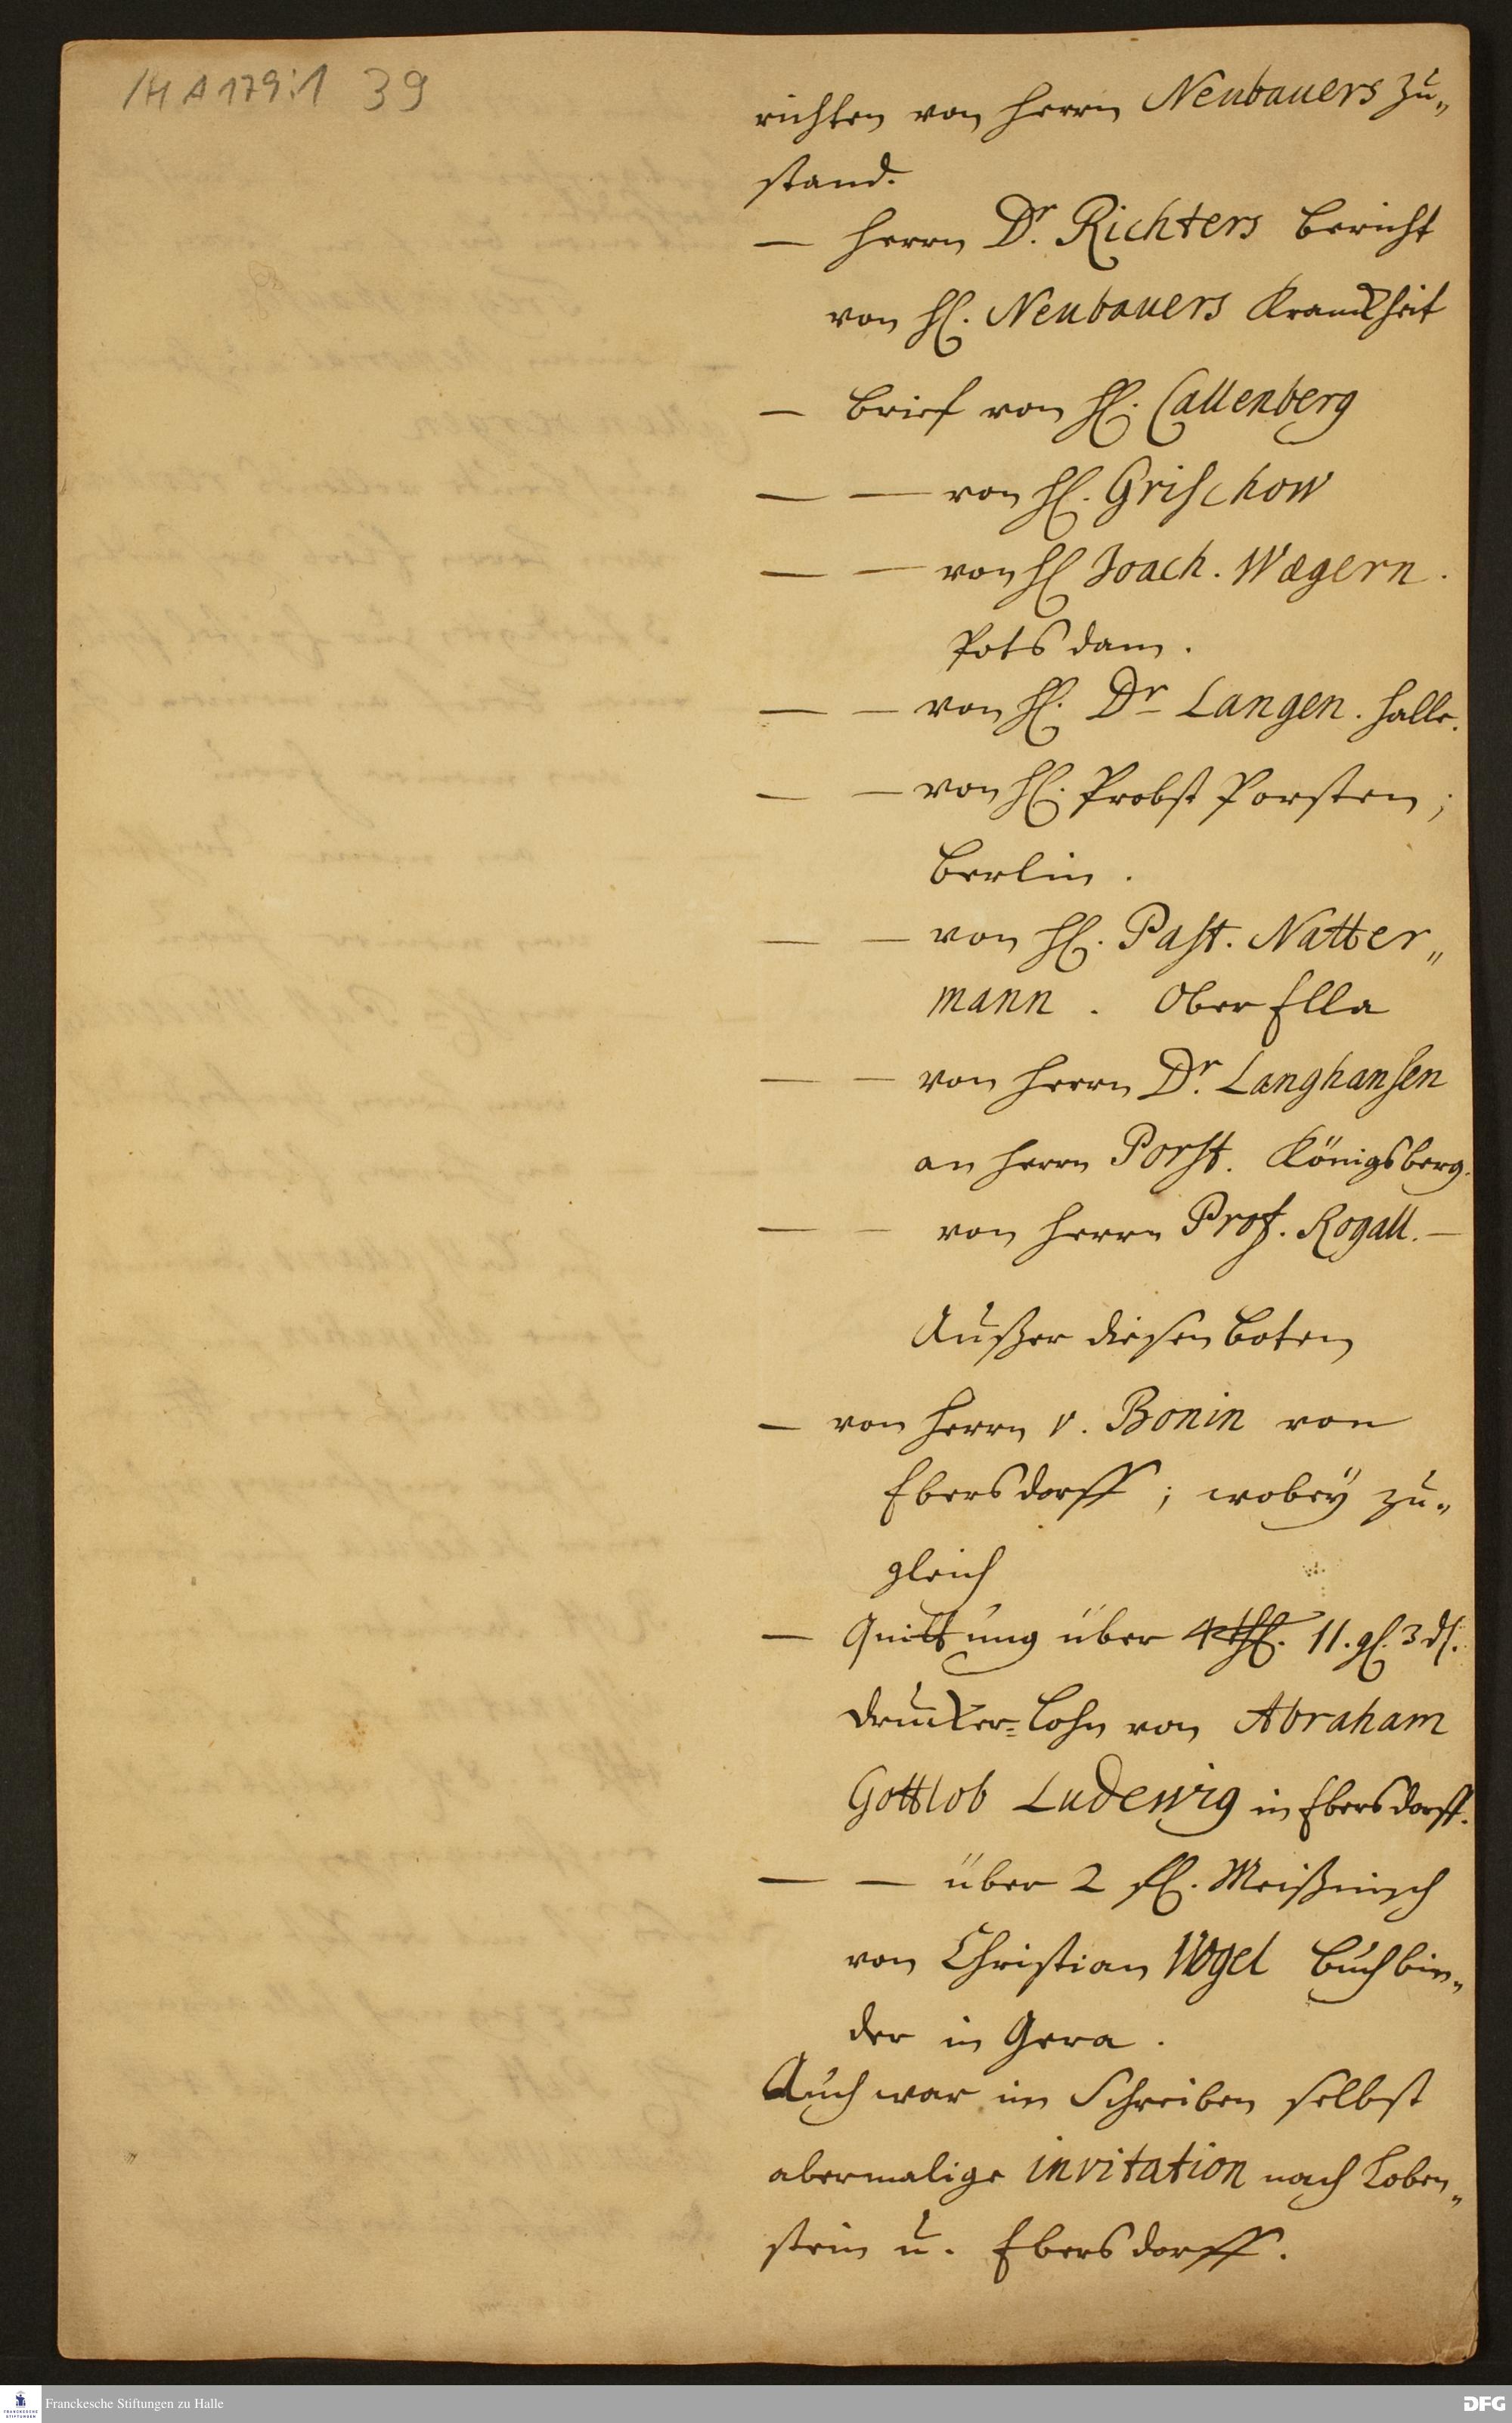 /H A 179:1 39
richten von Herrn Neubauers Zu„
stand.
— Herrn Dr. Richters Bericht
von H. Neubauers Kranckheit
— Brief von H. Callenberg
— — von H. Grischow
— — von H Joach. Wægern.
Potsdam.
— — von H. Dr Langen. Halle.
— — von H. Probst Porsten;
Berlin.
— — von H. Past. Natter„
mann. Ober Ella
— — von Herrn Dr. Langhansen
an Herrn Porst. Königsberg.
— — von Herrn Prof. Rogall. —
Außer diesen Boten
— von Herrn v. Bonin von
Ebersdorff; wobeÿ zu„
gleich
— Quittung über 4 rthl. 11. gl. 3 d.
Drucker-Lohn von Abraham
Gottlob Ludewig in Ebersdorff.
— — über 2 fl. Meißnisch
von Christian Vogel Buchbin„
der in Gera.
Auch war im Schreiben selbst
abermalige invitation nach Loben„
stein u. Ebersdorff.
Franckesche Stiftungen zu Halle
DFG